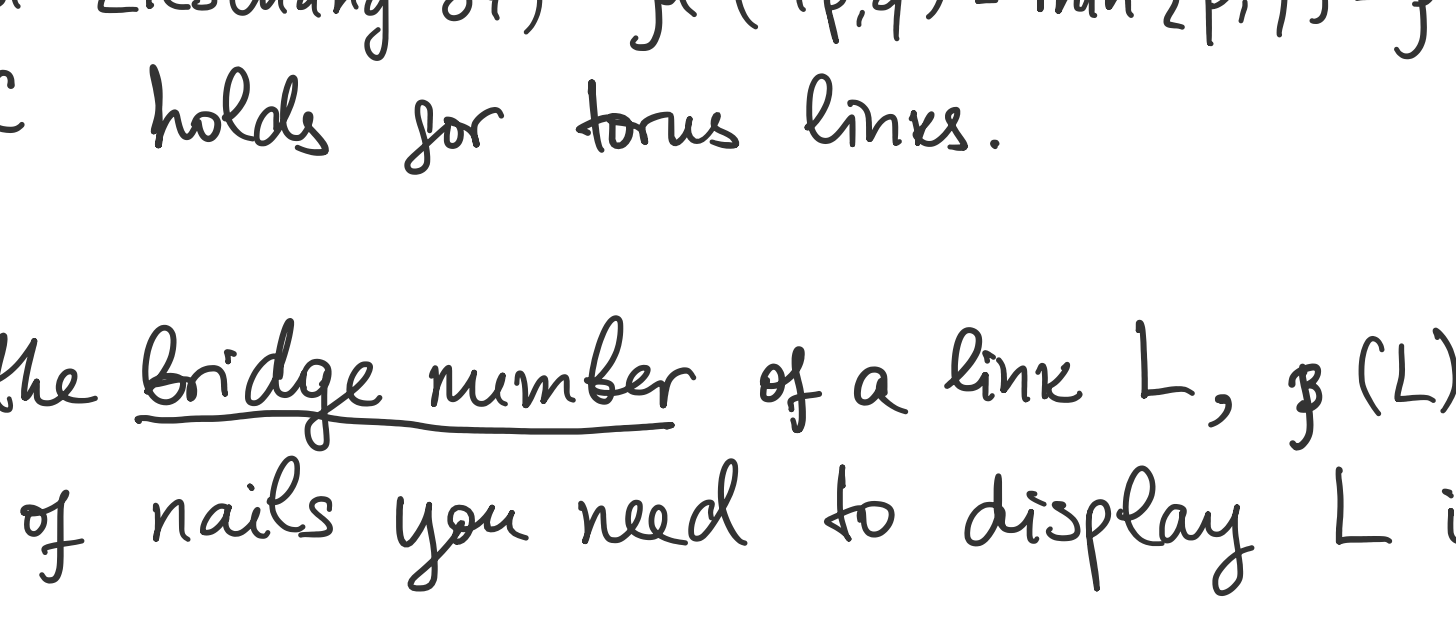 holds for torus links.
the bridge number of a link L, β(L)
of nails you need to display L